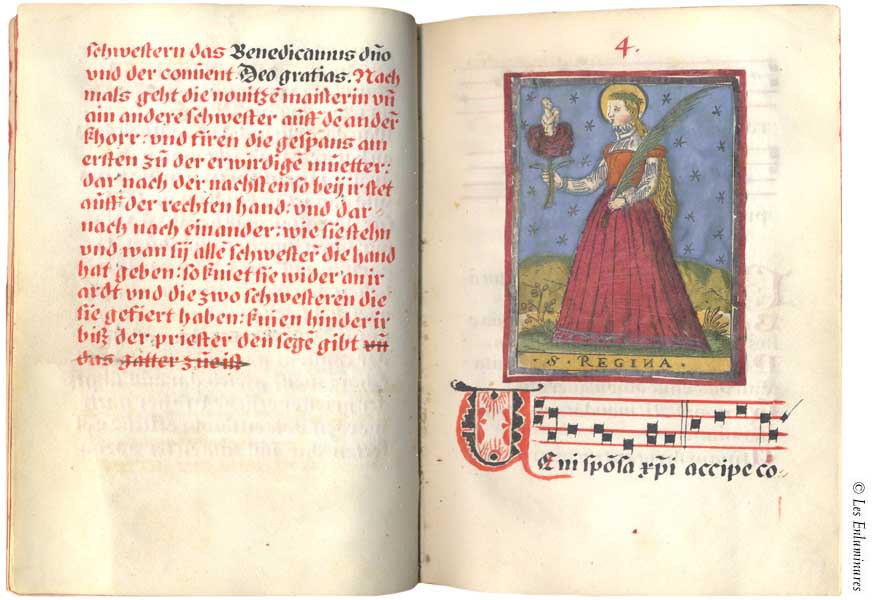 schwestern das Benedicamus dño
vnd der conuent Deo gratias. Nach
mals geht die nouitzẽ maisterin vñ
ain andere schwester auff dẽ andeR
khorr: vnd fũren die gespons am
ersten zũ der erwirdigẽ mũetter:
dar nach der nachsten so beij ir stet
auff der rechten hand: vnd dar-
nach nach einander: wie sie stehn
vnd wan sij allẽ schwesterẽ die hand
hat geben: so kniet sie wider an ir
ardt vnd die zwo schwesteren die
sie gefiert haben: knien hinder ir
biß der priester den segẽ gibt vñ
das gatter zũ eist
4.
S. REGINA.
VEni spõsa xp̃i accipe co-
© Les Enluminures